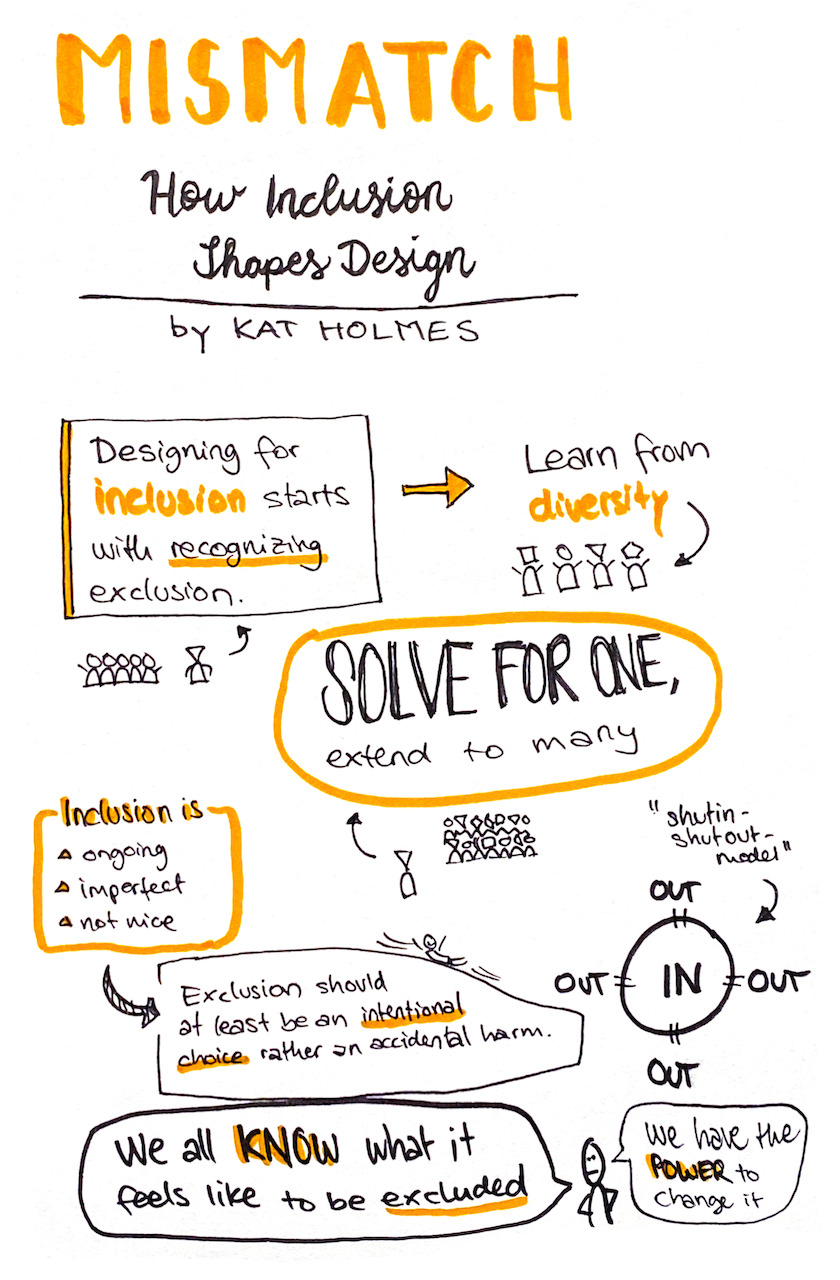 MISMATCH
How Inclusion
Shapes Design
by KAT HOLMES
Designing for
inclusion starts
with recognizing
exclusion.
Learn from
diversity
SOLVE FOR ONE,
extend to many
Inclusion is
ongoing
imperfect
not nice
"shutin-
shutout-
model"
OUT
OUT
IN
OUT
OUT
Exclusion should
at least be an intentional
choice rather an accidental harm.
We all KNOW what it
feels like to be excluded
We have the
POWER to
change it